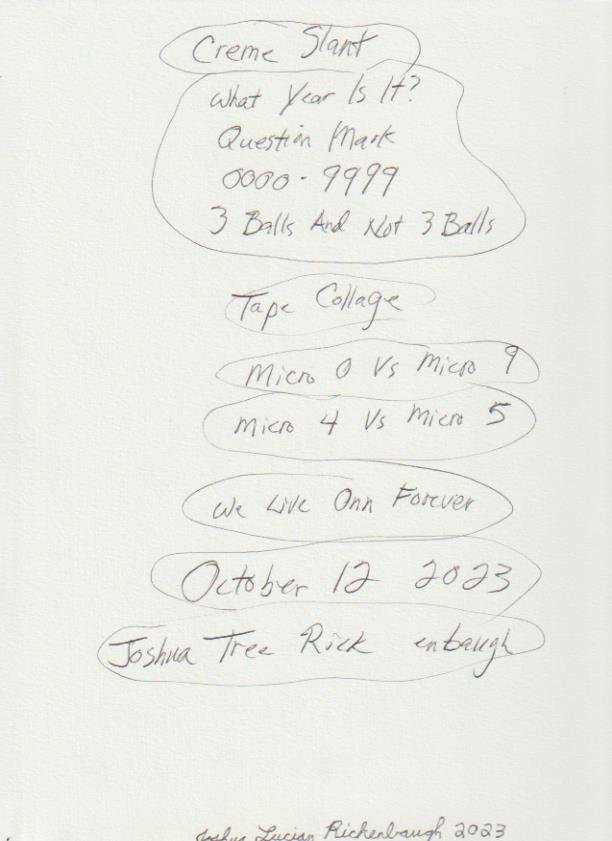 Creme Slant
What Year Is It?
Question Mark
0000 - 9999
3 Balls And Not 3 Balls
Tape Collage
Micro 0 Vs Micro 9
Micro 4 Vs Micro 5
We Live Onn Forever
October 12 2023
Joshua Tree Rick enbaugh
Joshua Lucian Rickenbaugh 2023